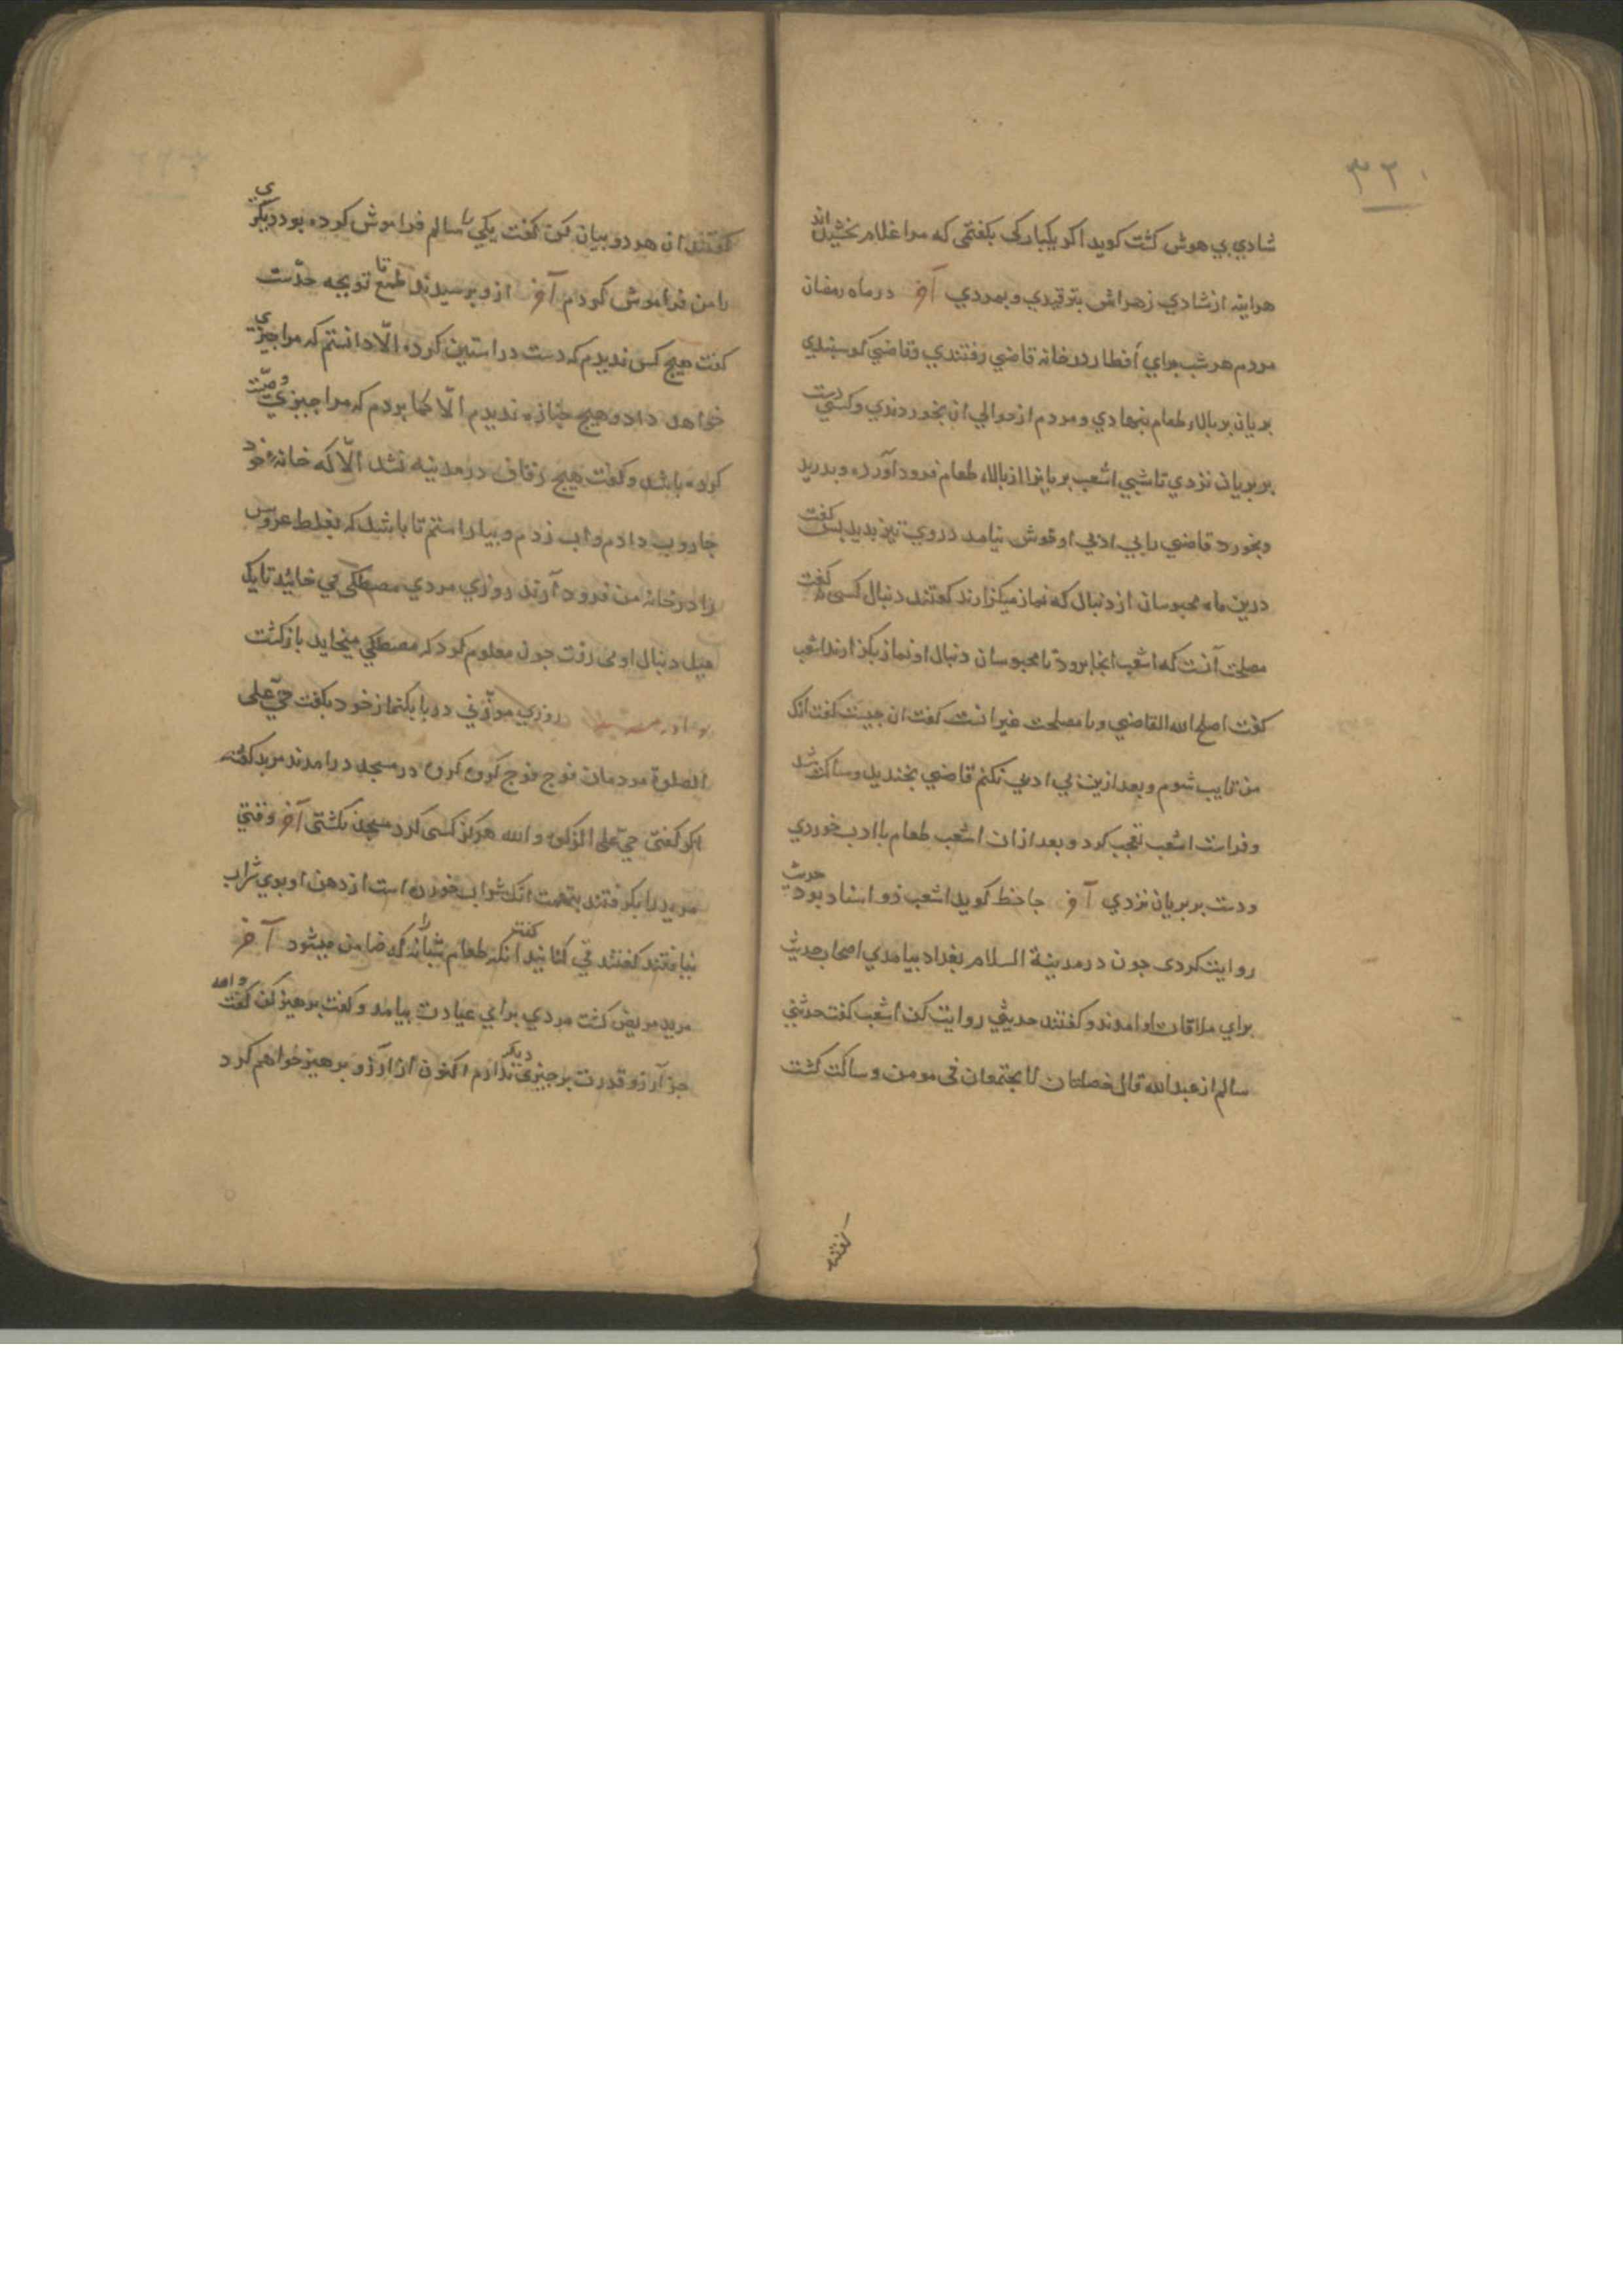 ۳۲۰
شادي بي هوش كشت كويد اكر يكباركى بكفتمى كه مرا غلام بخشيده اند
هراينه از شادي زهراش بترقيدي و بمردي آخر در ماه رمضان
مردم هر شب براي افطار در خانه قاضي رفتندي و قاضي كوسپندي
بريان بر بالاء طعام بنهادي و مردم از حوالي آن بخوردندي و كسي دست
بر بريان نزدي تا شبي اشعب بريانرا از بالاء طعام فرود آورد و بدريد
و بخورد قاضي را بي ادبي او خوش نيامد در وي تيز بديد پس كفت
درين ماه محبوسان از دنبال كه نماز ميكزارند كفتند دنبال كسى نه كفت
مصلحت آنست كه اشعب انجا برود تا محبوسان دنبال او نماز بكزارند اشعب
كفت اصلح الله القاضي و يا مصلحت غير انست كفت ان چيست كفت انك
من تايب شوم و بعد ازين بي ادبي نكنم قاضي بخنديد و ساكت شد
و فراست اشعب تعجب كرد و بعد ازان اشعب طعام با ادب خوردي
و دست بر بريان نزدي آخر جاحظ كويد اشعب ذو اسناد بود حديث
روايت كردى جون در مدينة السلام بغداد بيامدي اصحاب حديث
براي ملاقات او امدند و كفتند حديثي روايت كن اشعب كفت حدثني
سالم از عبد الله قال خصلتان لا يجتمعان فى مومن و ساكت كشت
كفتند
كفتند ان هر دو بيان كن كفت يكي را سالم فراموش كرده بود ديكري
را من فراموش كردم آخر ازو پرسيدند طمع تا تو بچه حدست
كفت هيچ كس نديدم كه دست در استين كرده الّا دانستم كه مرا چيزي
خواهد داد و هيچ جنازه نديدم الّا كما بودم كه مرا چيزي وصيّت
كرده باشد و كفت هيچ زفاف در مدينه نشد الّا كه خانهٔ خود
جاروب دادم و اب زدم و بياراستم تا باشد كه بغلط عروس
را در خانه من فرود آرند روزي مردي مصطكي مي خائيد تا يك
ميل دنبال او مى رفت جون معلوم كرد كه مصطكي ميخايد بازكشت
روزي موذّني در بانك نماز خود بكفت حيّ على
الصلوة مردمان فوج فوج كروه كروه در مسجد درامدند مزبد كفت
اكر كفتى حيّ على الزكوة و الله هركز كسى كرد مسجد نكشتى آخر وقتي
مزبد را بكرفتند بتهمت انك شراب خورده است از دهن او بوي شراب
نيافتند كفتند قي كنانيد انكه كفت طعام شبانه را كه ضامن ميشود آخر
مزبد مريض كشت مردي براي عيادت بيامد و كفت پرهيز كن كفت و الله
جز آرزو قدرت بر چيزي ديكر ندارم اكنون از آرزو پرهيز خواهم كرد